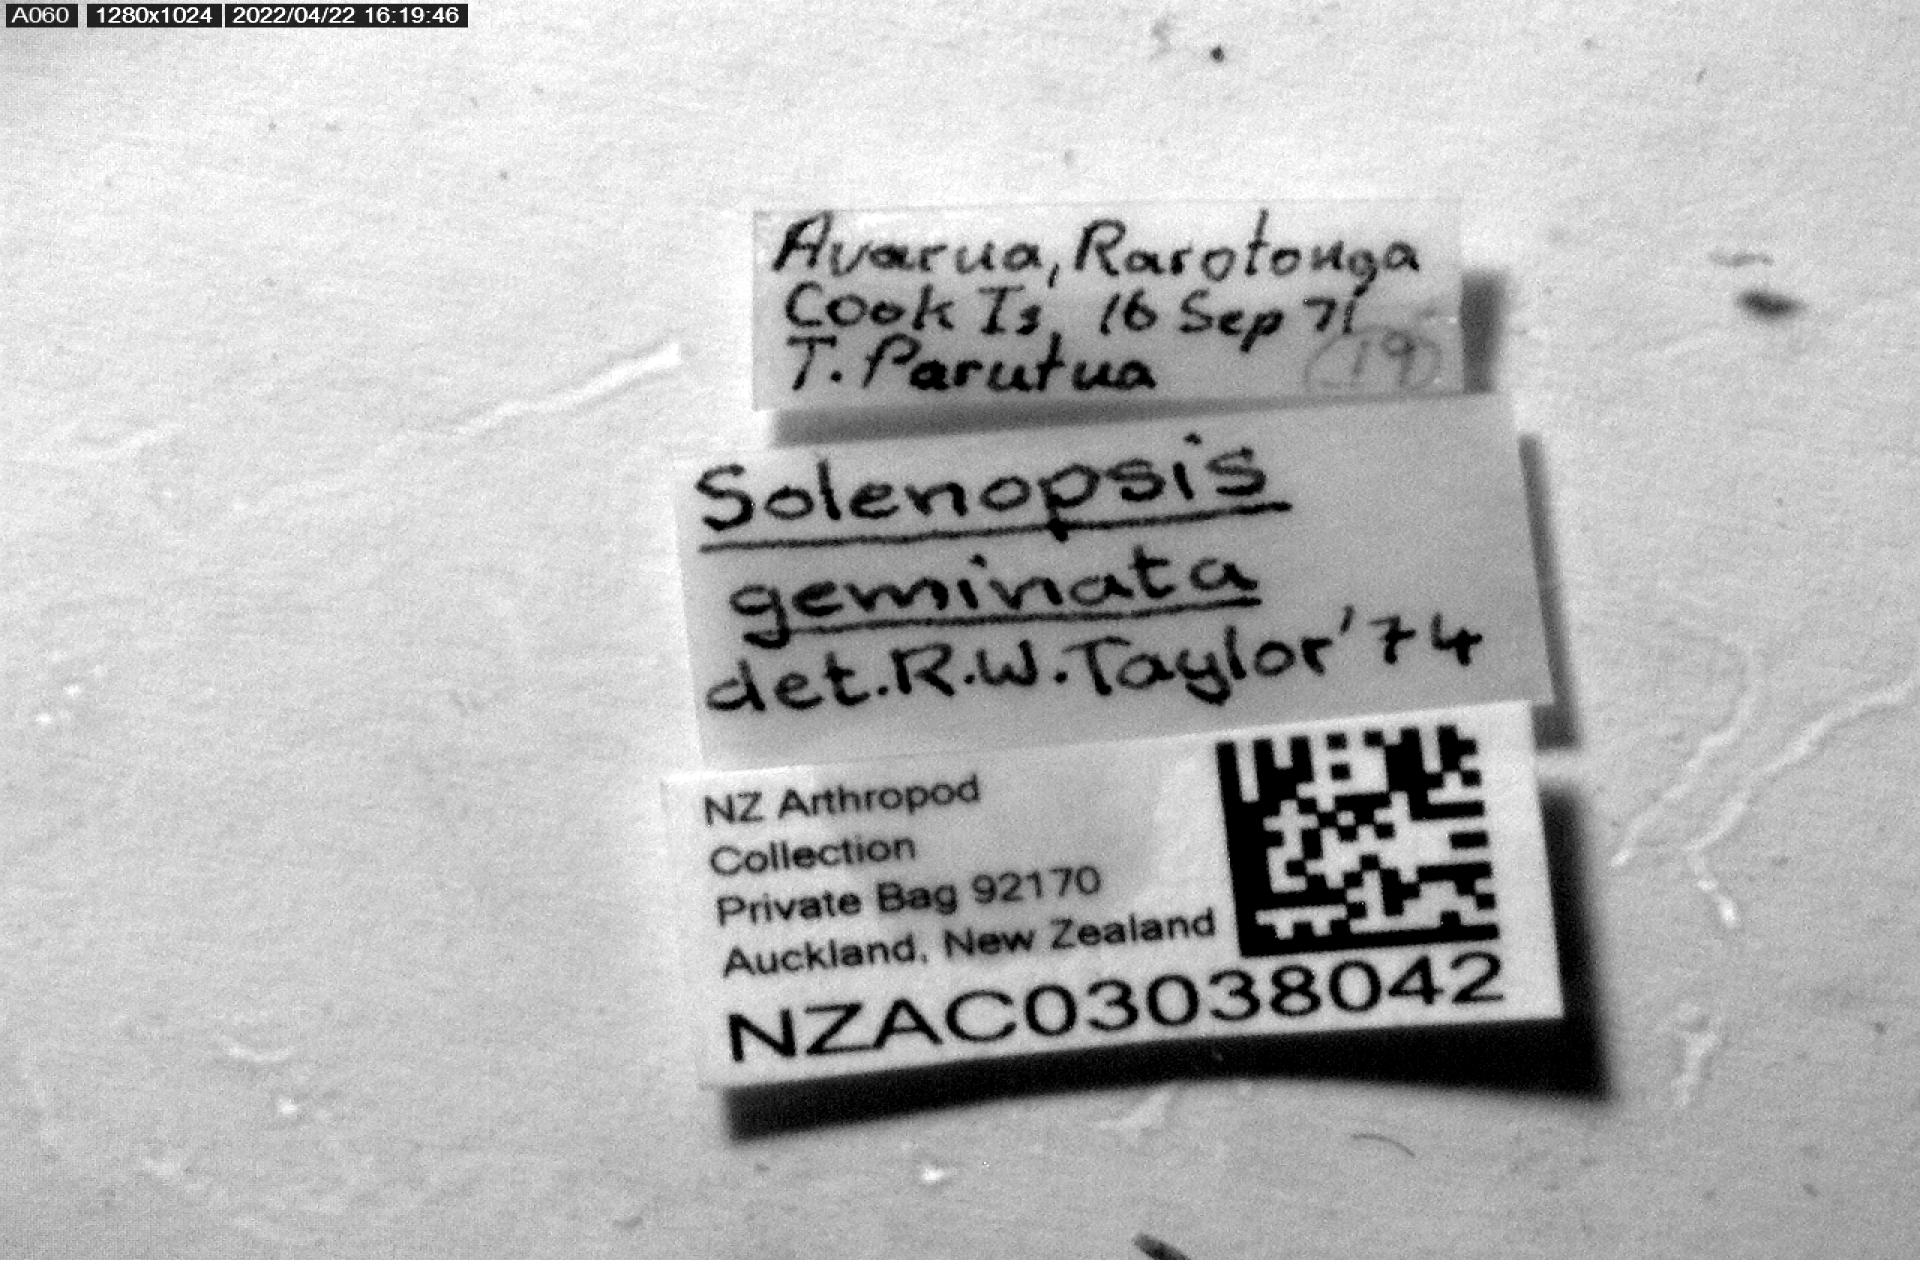 A060 1280x1024 2022/04/22 16:19:46
Avarua, Rarotonga
Cook Is, 16 Sep 71
T. Parutua (19)
Solenopsis
geminata
det. R.W. Taylor '74
NZ Arthropod
Collection
Private Bag 92170
Auckland, New Zealand
NZAC03038042